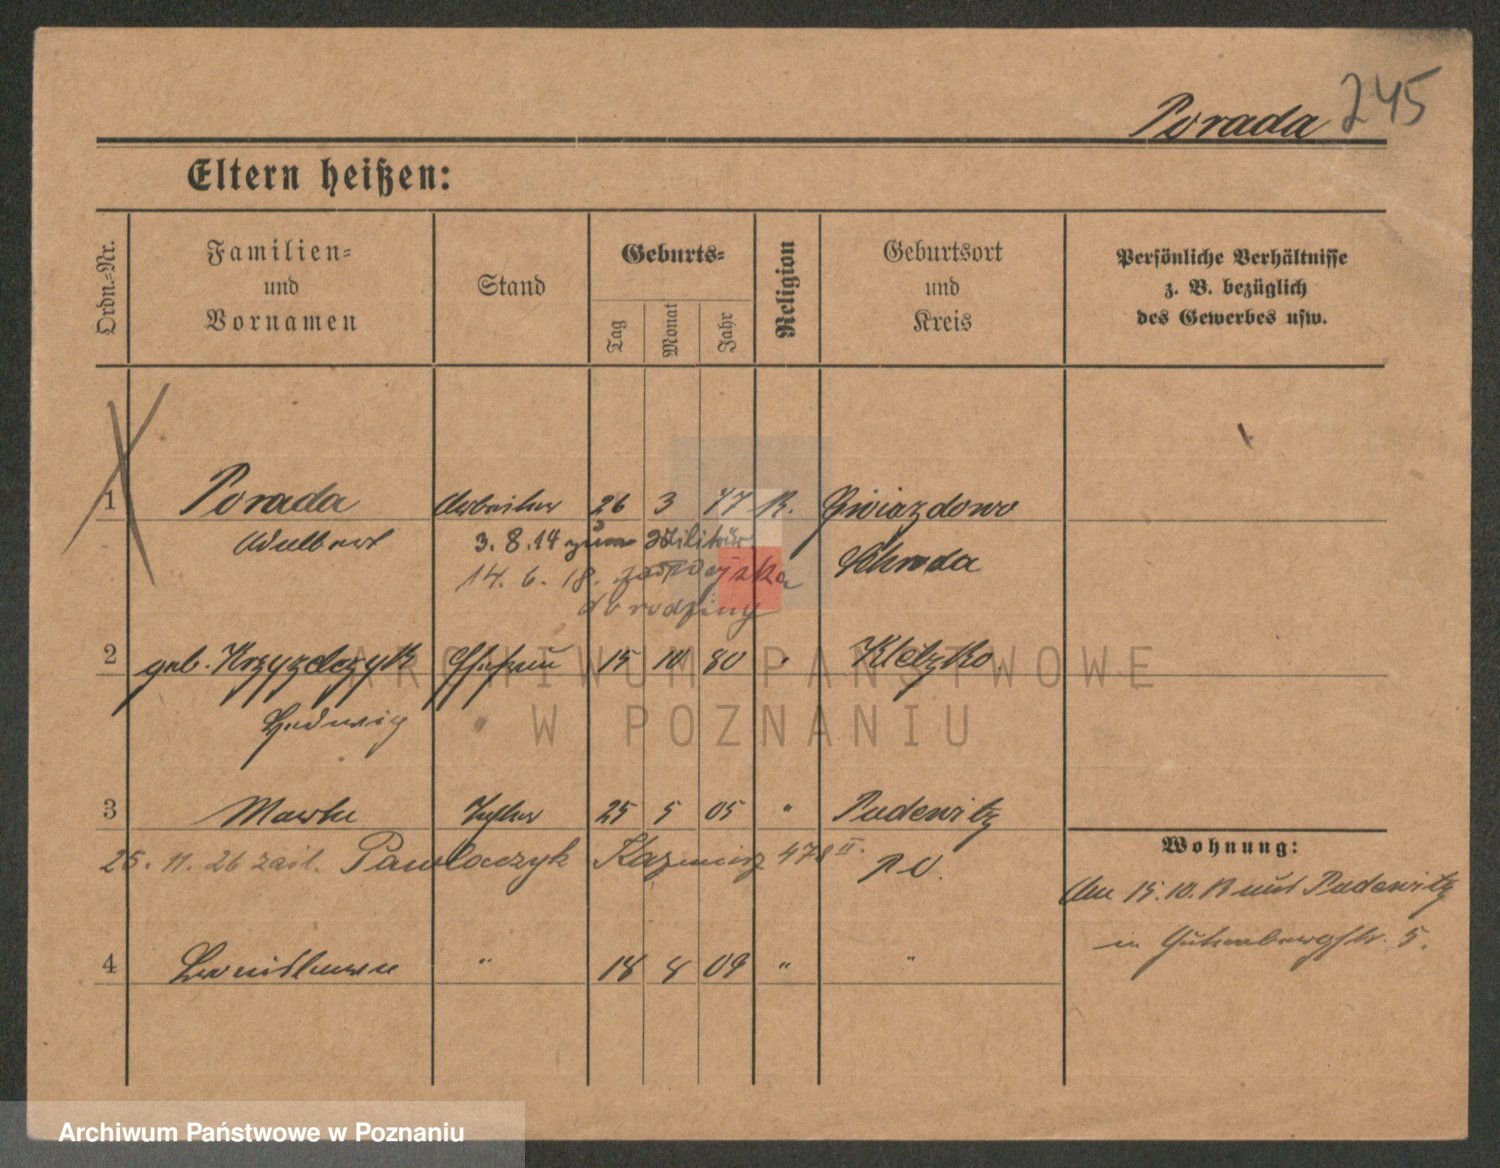 Porada 245
Eltern heißen:
Ordn.-Nr.
Familien-
und
Vornamen
Stand
Geburts-
Tag
Monat
Jahr
Religion
Geburtsort
und
Kreis
Persönliche Verhältnisse
z. B. bezüglich
des Gewerbes usw.
1 Porada Arbeiter 26 3 77 K. Gwiazdowo
Adalbert 3.8.14 zum Militär Schroda
14. 6. 18.
do rodziny
2 geb. Krzyzelczyk Ehefrau 15 10 80 " Kletzko
Hedwig
3 Tochter 25 5 05 " Pudewitz
25. 11. 26 Pawlaczyk
4 Bronislawa " 18 8 09 " "
Wohnung:
Am 15.10. Pudewitz
in Gutenbergstr. 5.
ARCHIWUM PAŃSTWOWE
W POZNANIU
Archiwum Państwowe w Poznaniu